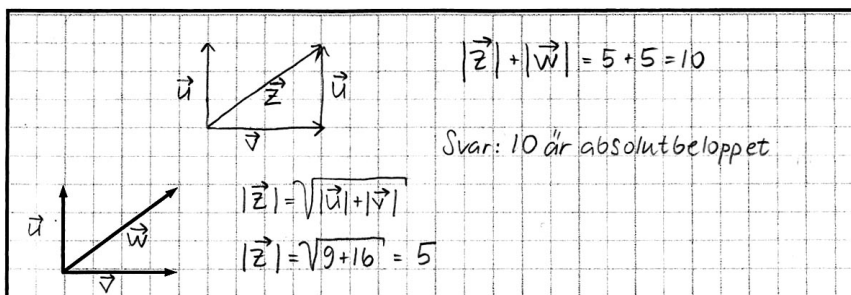 u⃗ z⃗ u⃗
v⃗
|z⃗| + |w⃗| = 5 + 5 = 10
Svar: 10 är absolutbeloppet
u⃗ w⃗
v⃗
|z⃗| = √(|u⃗| + |v⃗|)
|z⃗| = √(9 + 16) = 5